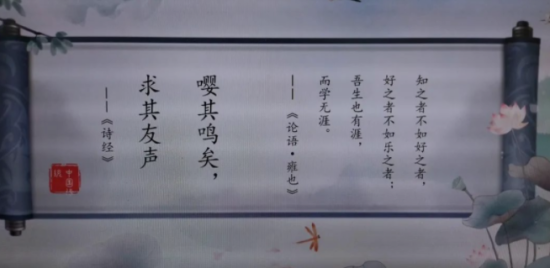 知之者不如好之者，
好之者不如乐之者；
吾生也有涯，
而学无涯。
——《论语·雍也》
嘤其鸣矣，
求其友声
——《诗经》